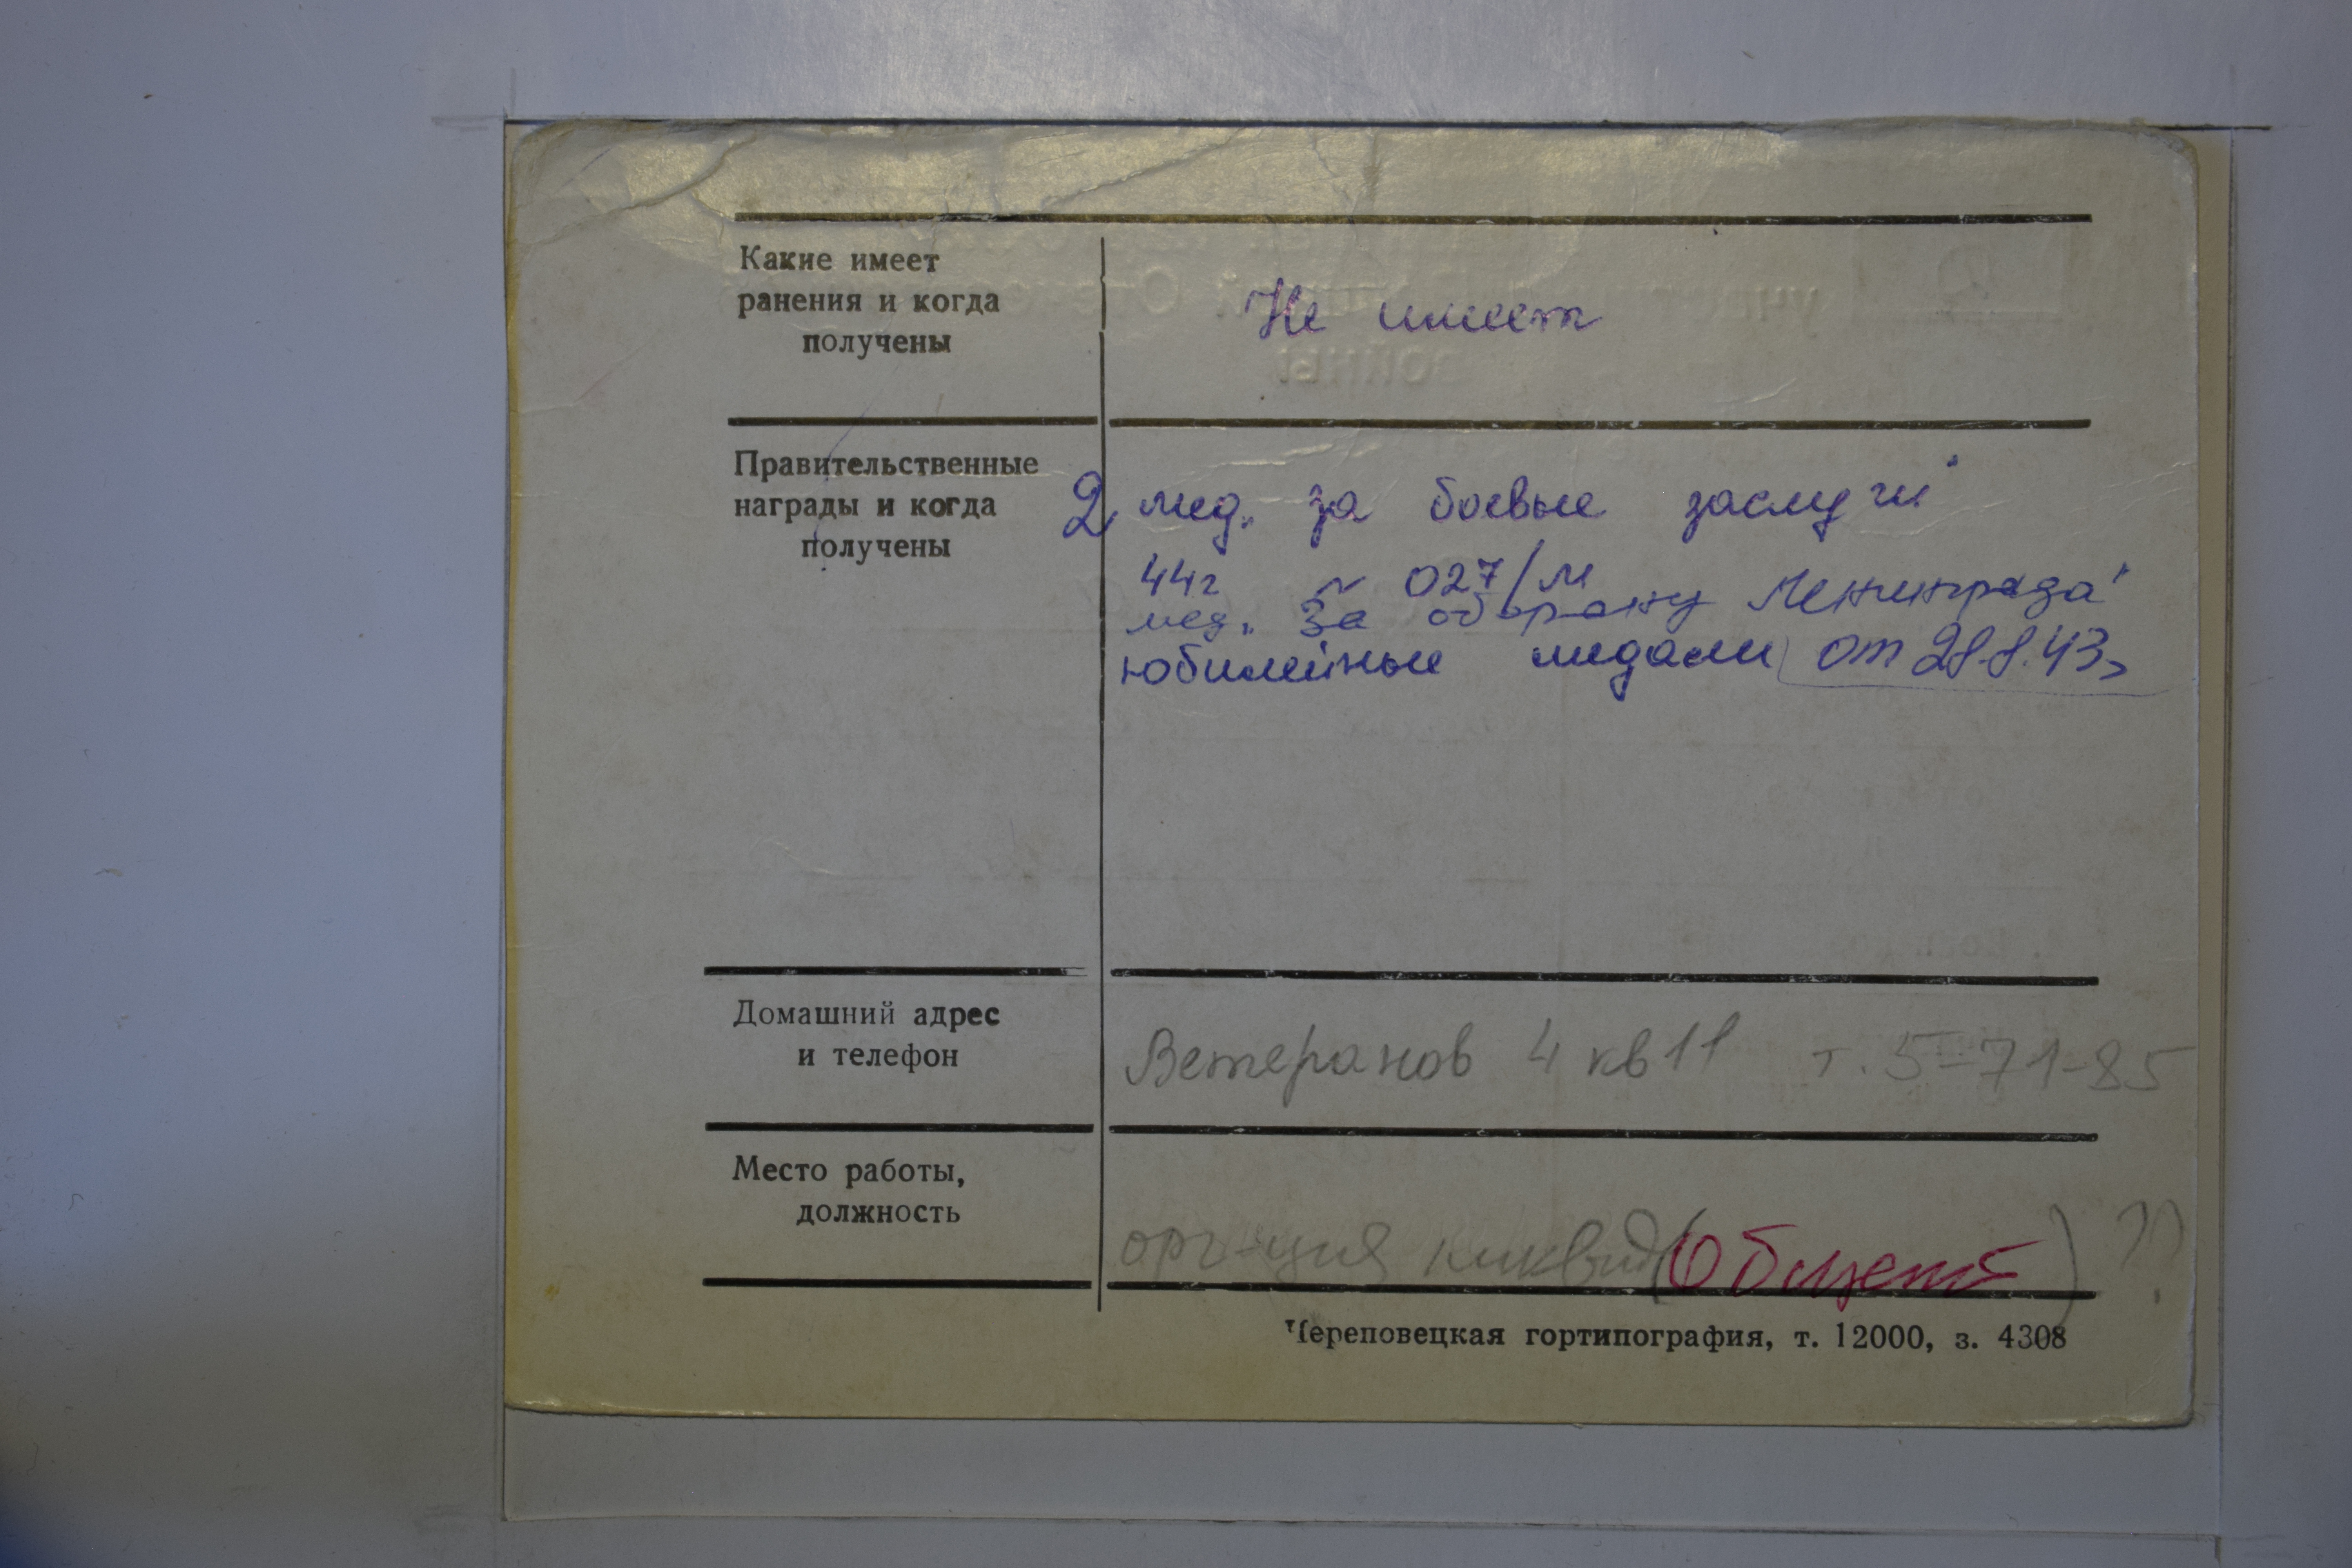 Какие имеет
ранения и когда
получены
Не имеет
Правительственные
награды и когда
получены
2 мед. за боевые заслуги
44г ~ 027/м
мед. За оборону Ленинграда"
юбилейные медали от 28.8.43г
Домашний адрес
и телефон
Ветеранов 4 кв 11 т. 5-71-85
Место работы,
должность
орг-ция ликвид (Общепит) ??
Череповецкая гортипография, т. 12000, з. 4308